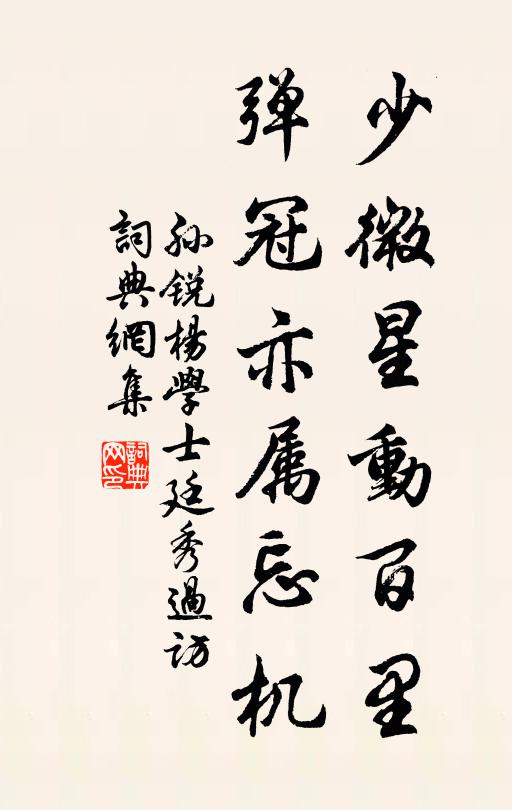 少微星動百里
弹冠亦属忘机
孙锐楊學士廷秀過訪
詞典網集
詞典网印